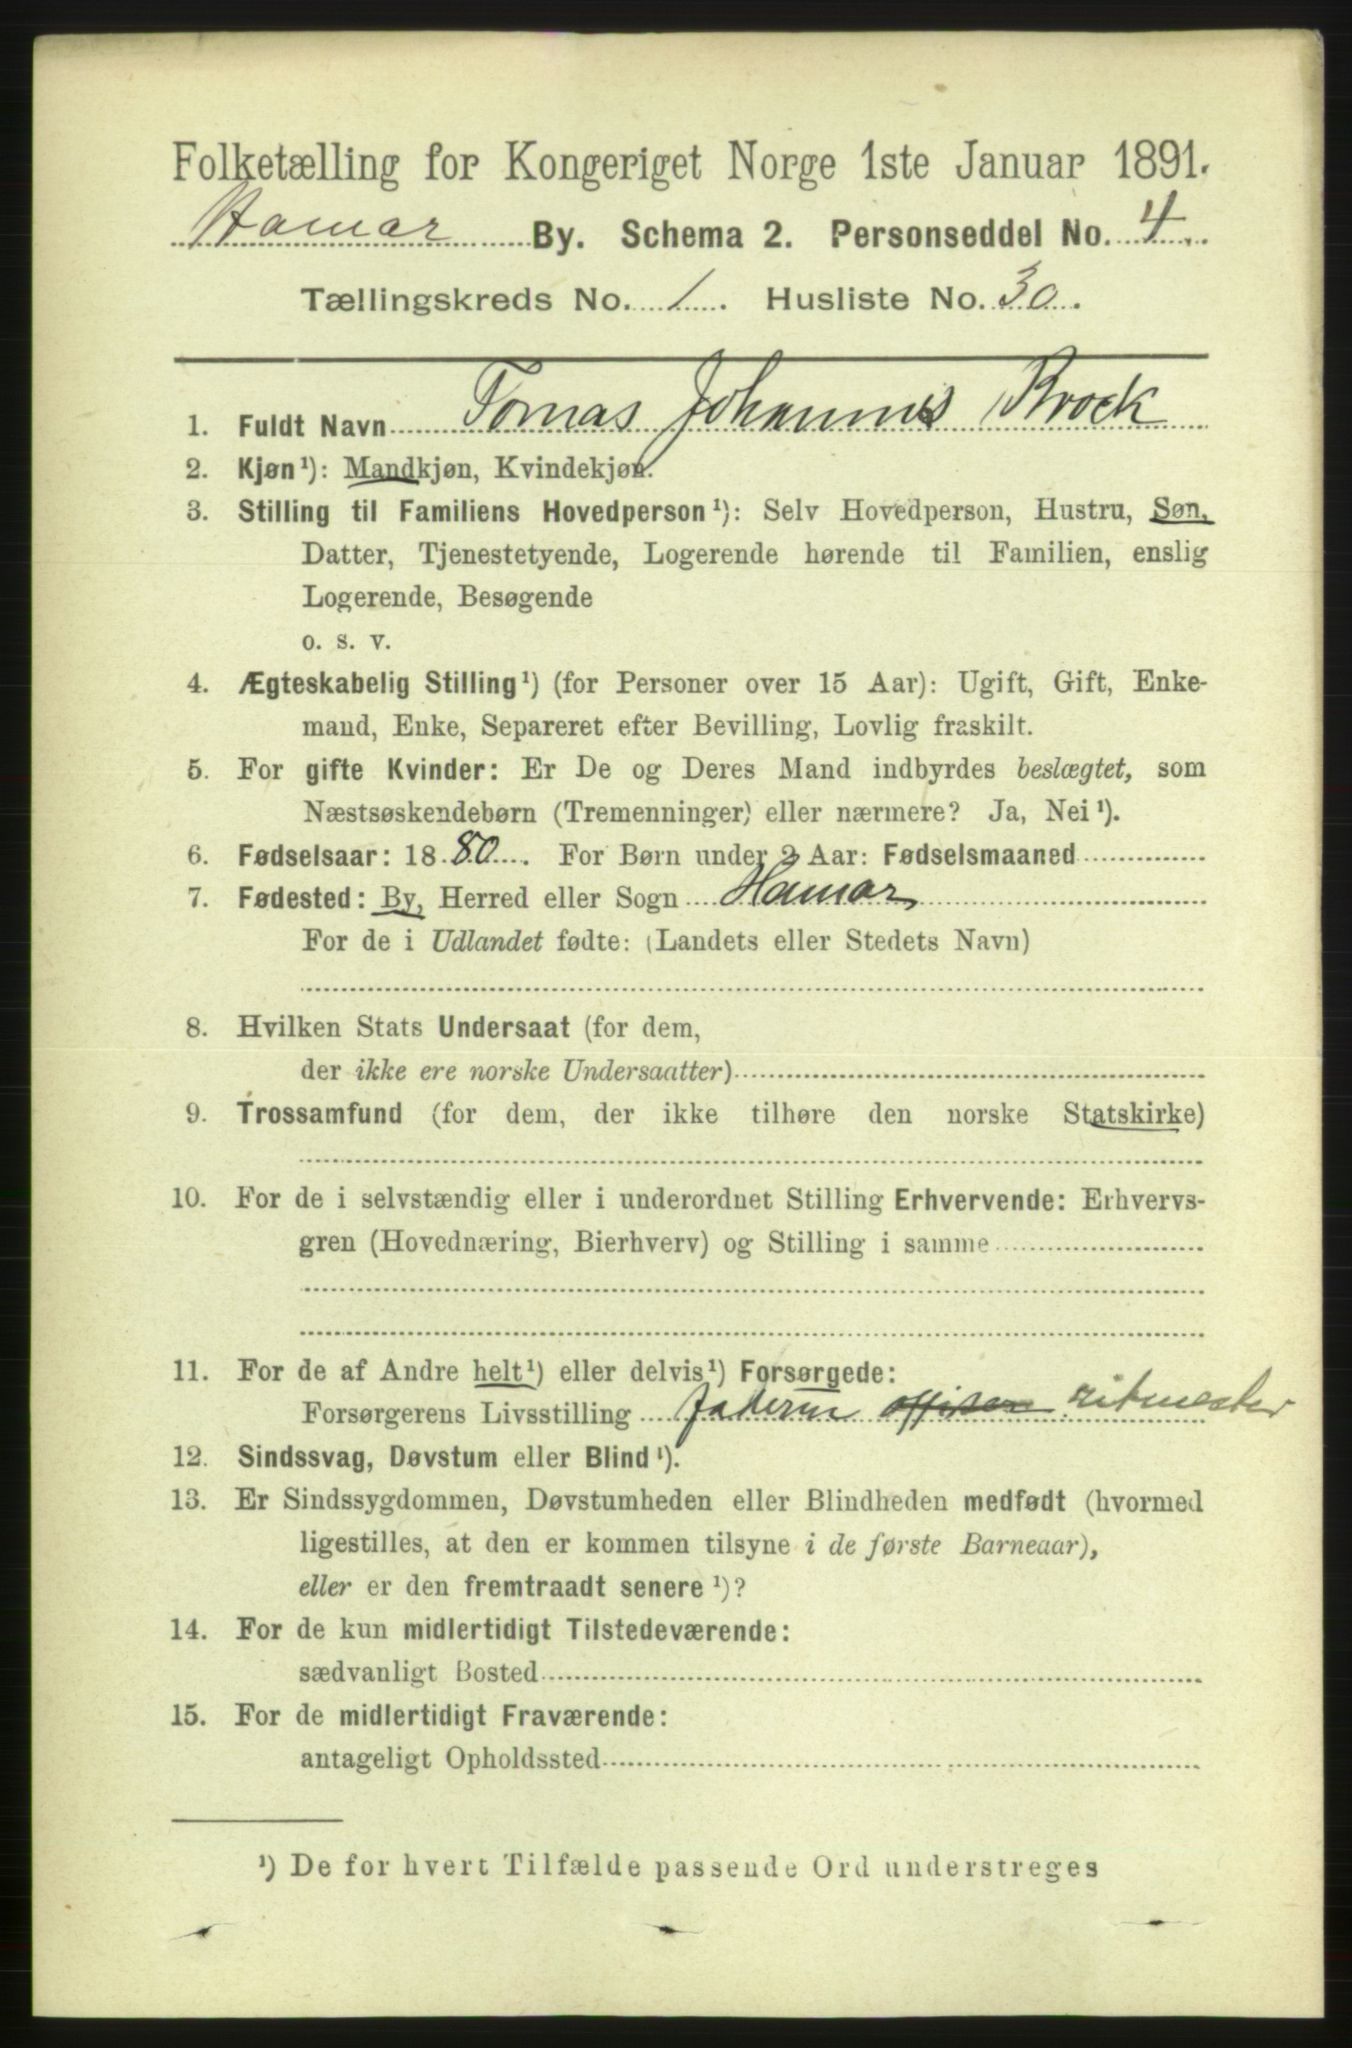 Folketælling for Kongeriget Norge 1ste Januar 1891.
Hamar By. Schema 2. Personseddel No. 4.
Tællingskreds No. 1. Husliste No. 30.
1. Fuldt Navn Tomas Johannes Brock
2. Kjøn¹): Mandkjøn, Kvindekjøn.
3. Stilling til Familiens Hovedperson¹): Selv Hovedperson, Hustru, Søn,
Datter, Tjenestetyende, Logerende hørende til Familien, enslig
Logerende, Besøgende
o. s. v.
4. Ægteskabelig Stilling¹) (for Personer over 15 Aar): Ugift, Gift, Enke-
mand, Enke, Separeret efter Bevilling, Lovlig fraskilt.
5. For gifte Kvinder: Er De og Deres Mand indbyrdes beslægtet, som
Næstsøskendebørn (Tremenninger) eller nærmere? Ja, Nei¹).
6. Fødselsaar: 1880. For Børn under 2 Aar: Fødselsmaaned
7. Fødested: By, Herred eller Sogn Hamar
For de i Udlandet fødte: (Landets eller Stedets Navn)
8. Hvilken Stats Undersaat (for dem,
der ikke ere norske Undersaatter)
9. Trossamfund (for dem, der ikke tilhøre den norske Statskirke)
10. For de i selvstændig eller i underordnet Stilling Erhvervende: Erhvervs-
gren (Hovednæring, Bierhverv) og Stilling i samme
11. For de af Andre helt¹) eller delvis¹) Forsørgede:
Forsørgerens Livsstilling officer ritmester
12. Sindssvag, Døvstum eller Blind¹).
13. Er Sindssygdommen, Døvstumheden eller Blindheden medfødt (hvormed
ligestilles, at den er kommen tilsyne i de første Barneaar),
eller er den fremtraadt senere¹)?
14. For de kun midlertidigt Tilstedeværende:
sædvanligt Bosted
15. For de midlertidigt Fraværende:
antageligt Opholdssted
¹) De for hvert Tilfælde passende Ord understreges